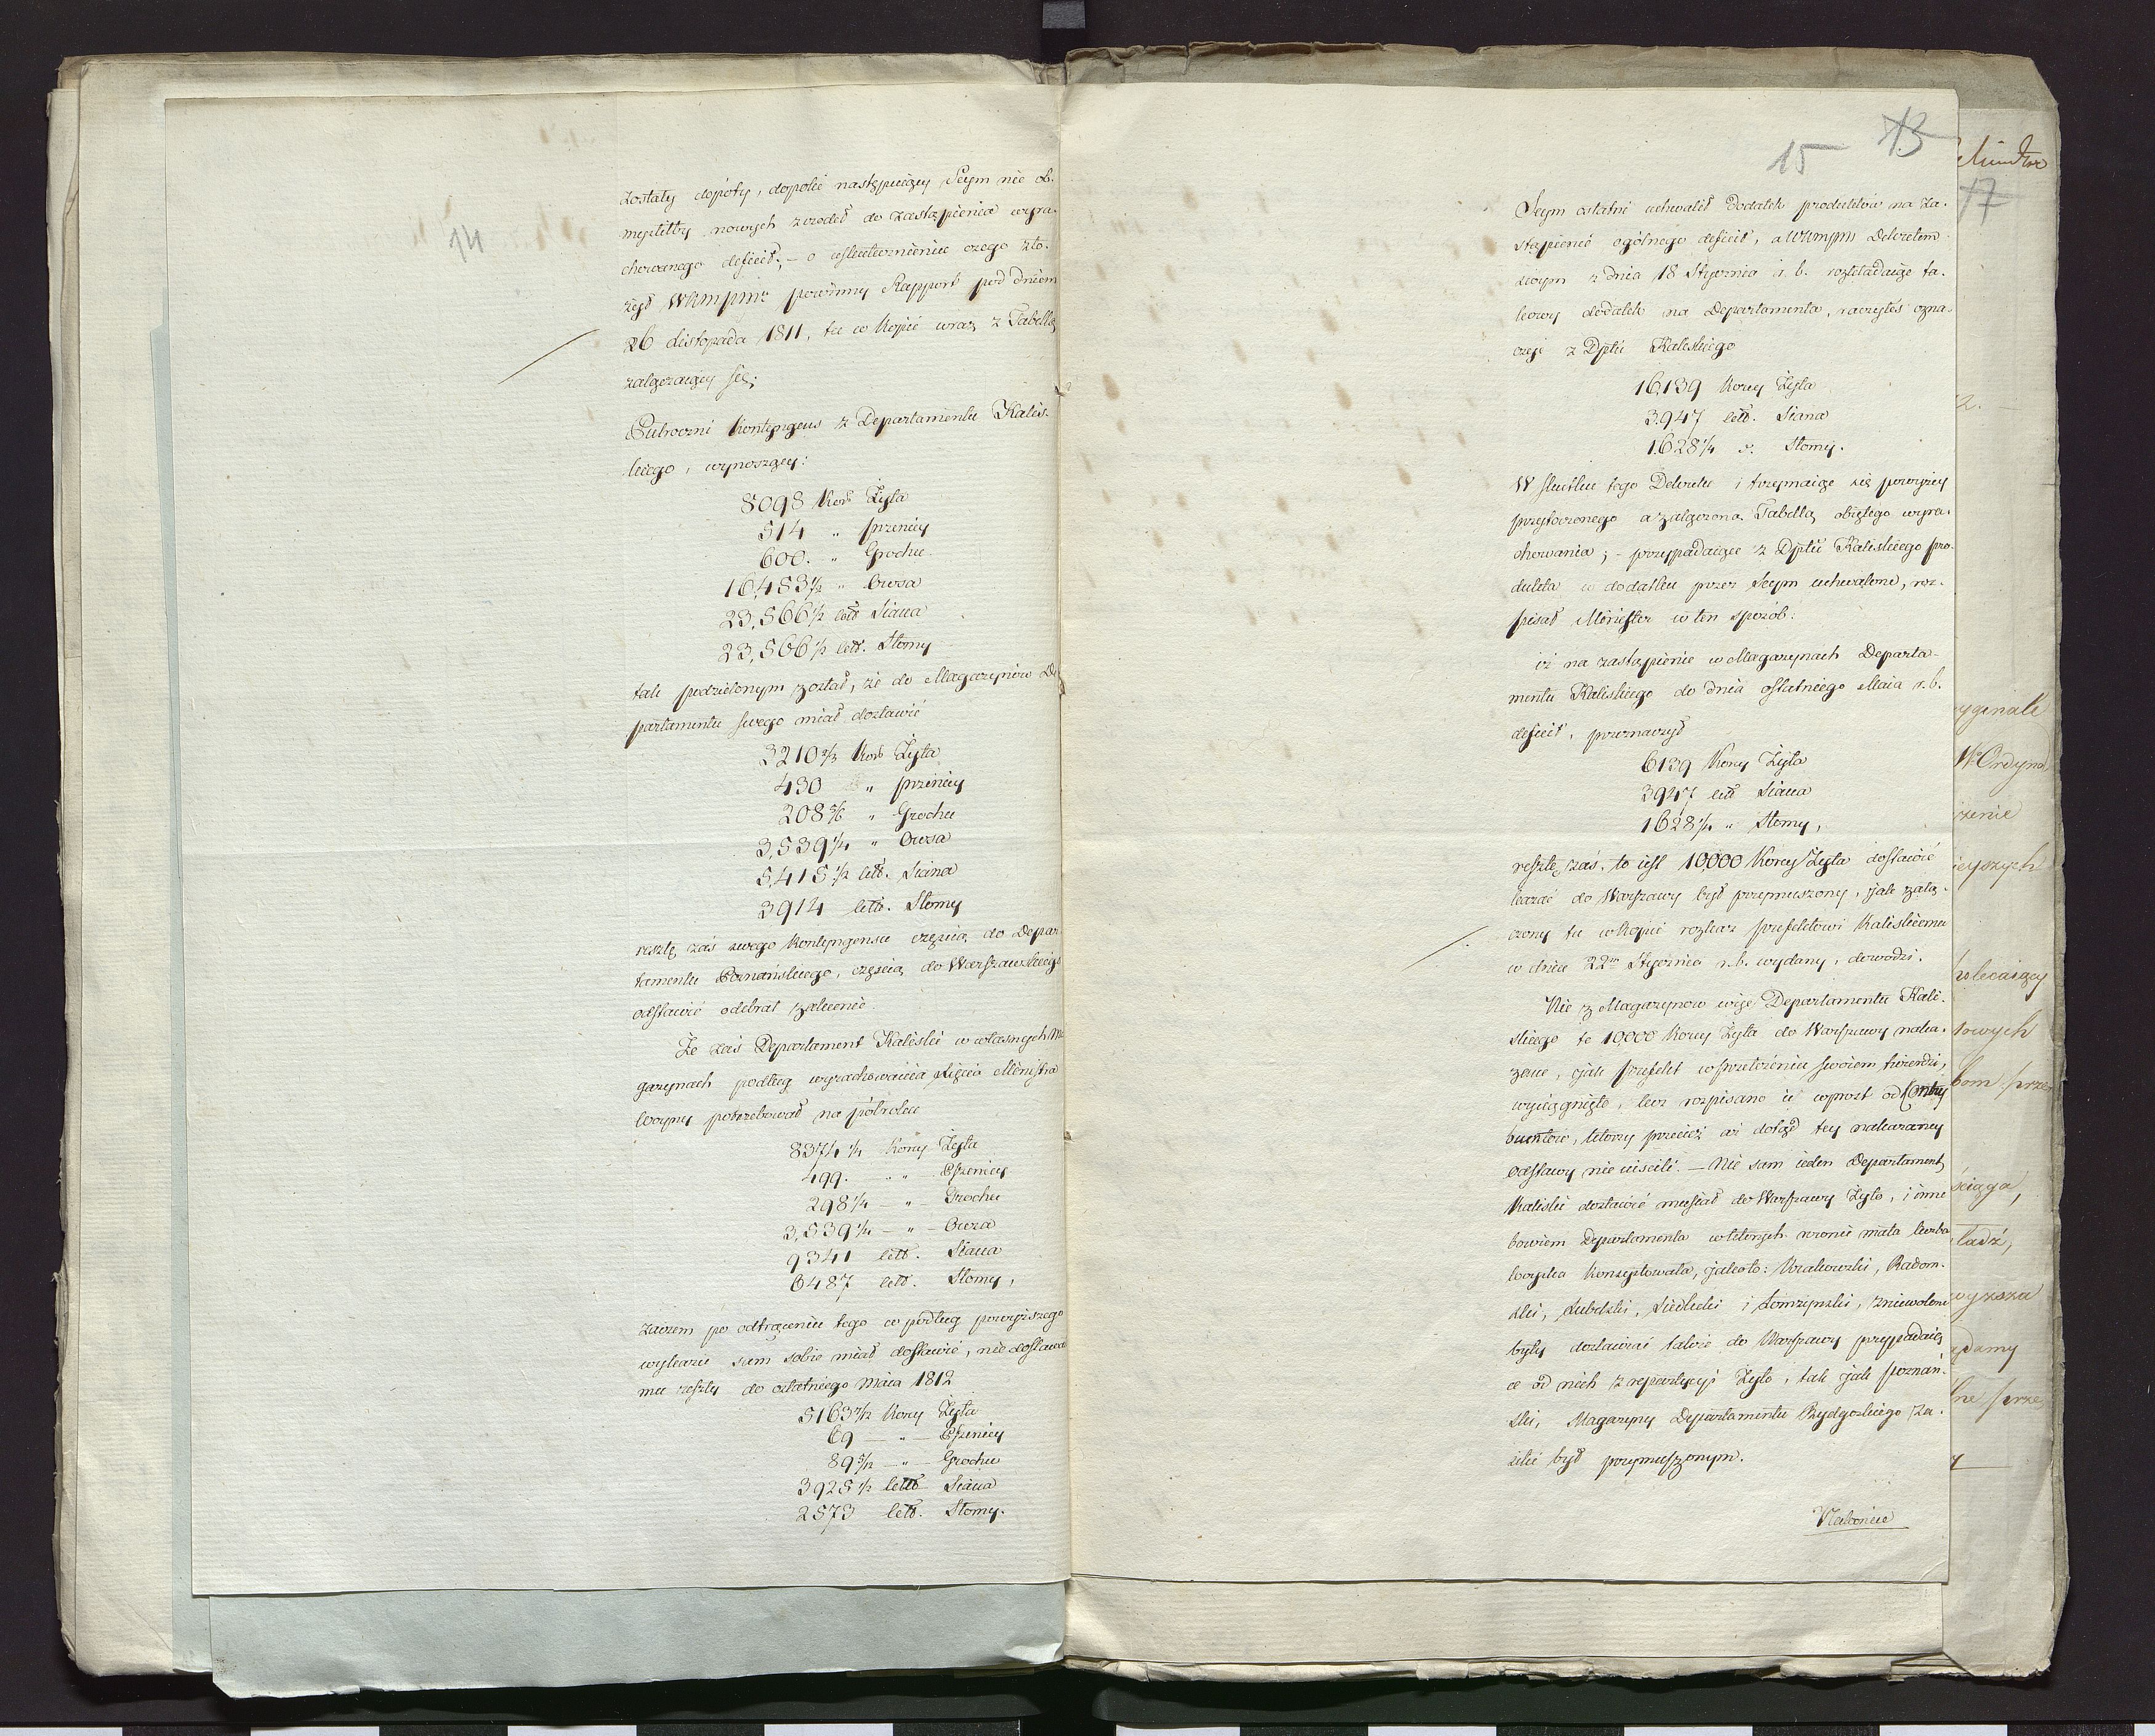 14
zostały dopóty, dopóki następuiący Seym nie ob-
myśliłby nowych zrodeł do zastąpienia wyra-
chowanego deficit; – o uskutecznieniu czego zło-
żył WKMPmu powinny Rapport pod dniem
26 Listopada 1811, tu w kopii wraz z Tabellą
załączaiący się;
Półroczni kontyngens z Departamentu Kalis-
kiego, wynoszący:
8098 Kor Żyta
514 " pszenicy
600. " Grochu
16,483 1/2 " Owsa
23,566 1/2 cetr Siana
23,566 1/2 cetr. Słomy
tak podzielonym został, że do Magazynów De
partamentu swego miał dostawić
3210 2/3 Kor Żyta
430 " pszenicy
208 5/6 " Grochu
3,539 1/4 " Owsa
5,415 1/2 cetr. Siana
3914 cetr. Słomy
resztę zaś swego kontyngensu częścią do Depar
tamentu Poznańskiego, częścią do Warszawskiego
odstawić odebrał zalecenie.
Że zaś Departament Kaliski w własnych Ma
gazynach podług wyrachowania Xięcia Ministra
Woyny potrzebował na półroku
8374 1/4 Korcy Żyta
499. - " - Pszenicy
298 1/4 - " - Grochu
3,539 1/4 - " - Owsa
9341 cetr. Siana
6487 cetr. Słomy,
zaczem po odtrąceniu tego co podług powyższego
wykazu sam sobie miał dostawić, nie dostawa
mu reszty do ostatniego Maia 1812
5163 7/12 Korcy Żyta
69 - " - Pszenicy
89 5/12 - " - Grochu
3925 1/2 cetr Siana
2573 cetr. Słomy.
15 13
Seym ostatni uchwalił dodatek produktów na za-
stąpienie ogólnego deficit, a WKMPM Dekretem
swoym z dnia 18 Stycznia r. b. rozkładaiąc ta-
kowy dodatek na Departamenta, raczyłeś ozna-
czyć z Dptu Kaliskiego
16,139 Korcy Żyta
3947 cetr. Siana
1628 1/4 c. Słomy.
W skutku tego Dekretu i trzymaiąc się powyżey
przytoczonego a załączoną Tabellą obiętego wyra-
chowania; – przypadaiące z Dptu Kaliskiego pro-
dukta w dodatku przez Seym uchwalone, roz-
pisał Minister w ten sposób:
iż na zastąpienie w Magazynach Departa-
mentu Kaliskiego do dnia ostatniego Maia r. b.
deficit, przeznaczył
6139 Korcy Żyta
3947 cetr Siana
1628 1/4 " Słomy,
resztę zaś, to iest 10,000 Korcy Żyta dostawić
kazać do Warszawy był przymuszony, jak załą-
czony tu w kopii rozkaz prefektowi Kaliskiemu
w dniu 22m Stycznia r. b. wydany, dowodzi.
Nie z Magazynów więc Departamentu Kali-
skiego te 10,000 Korcy Żyta do Warszawy naka-
zane, jak prefekt w przełożeniu swoiem twierdzi,
wyciągnięto, lecz rozpisano ie wprost od Kontry
buentów, którzy przecież aż dotąd tey nakazaney
odstawy nie uiścili. – Nie sam ieden Departament
Kaliski dostawić musiał do Warszawy Żyto, i inne
bowiem Departamenta w których równie mała liczba
woyska konsystowała, jakoto: Krakowski, Radom-
ski, Lubelski, Siedlecki i Łomżyński, zniewolone
były dostawiać także do Warszawy przypadaią
ce od nich z repartycyi Żyto, tak jak poznań-
ski, Magazyny Departamentu Bydgoskiego za-
silić był przymuszonym.
17
ygenale
W. Ordyna
żenie
lecaiący
towych
ściąga,
wyższa